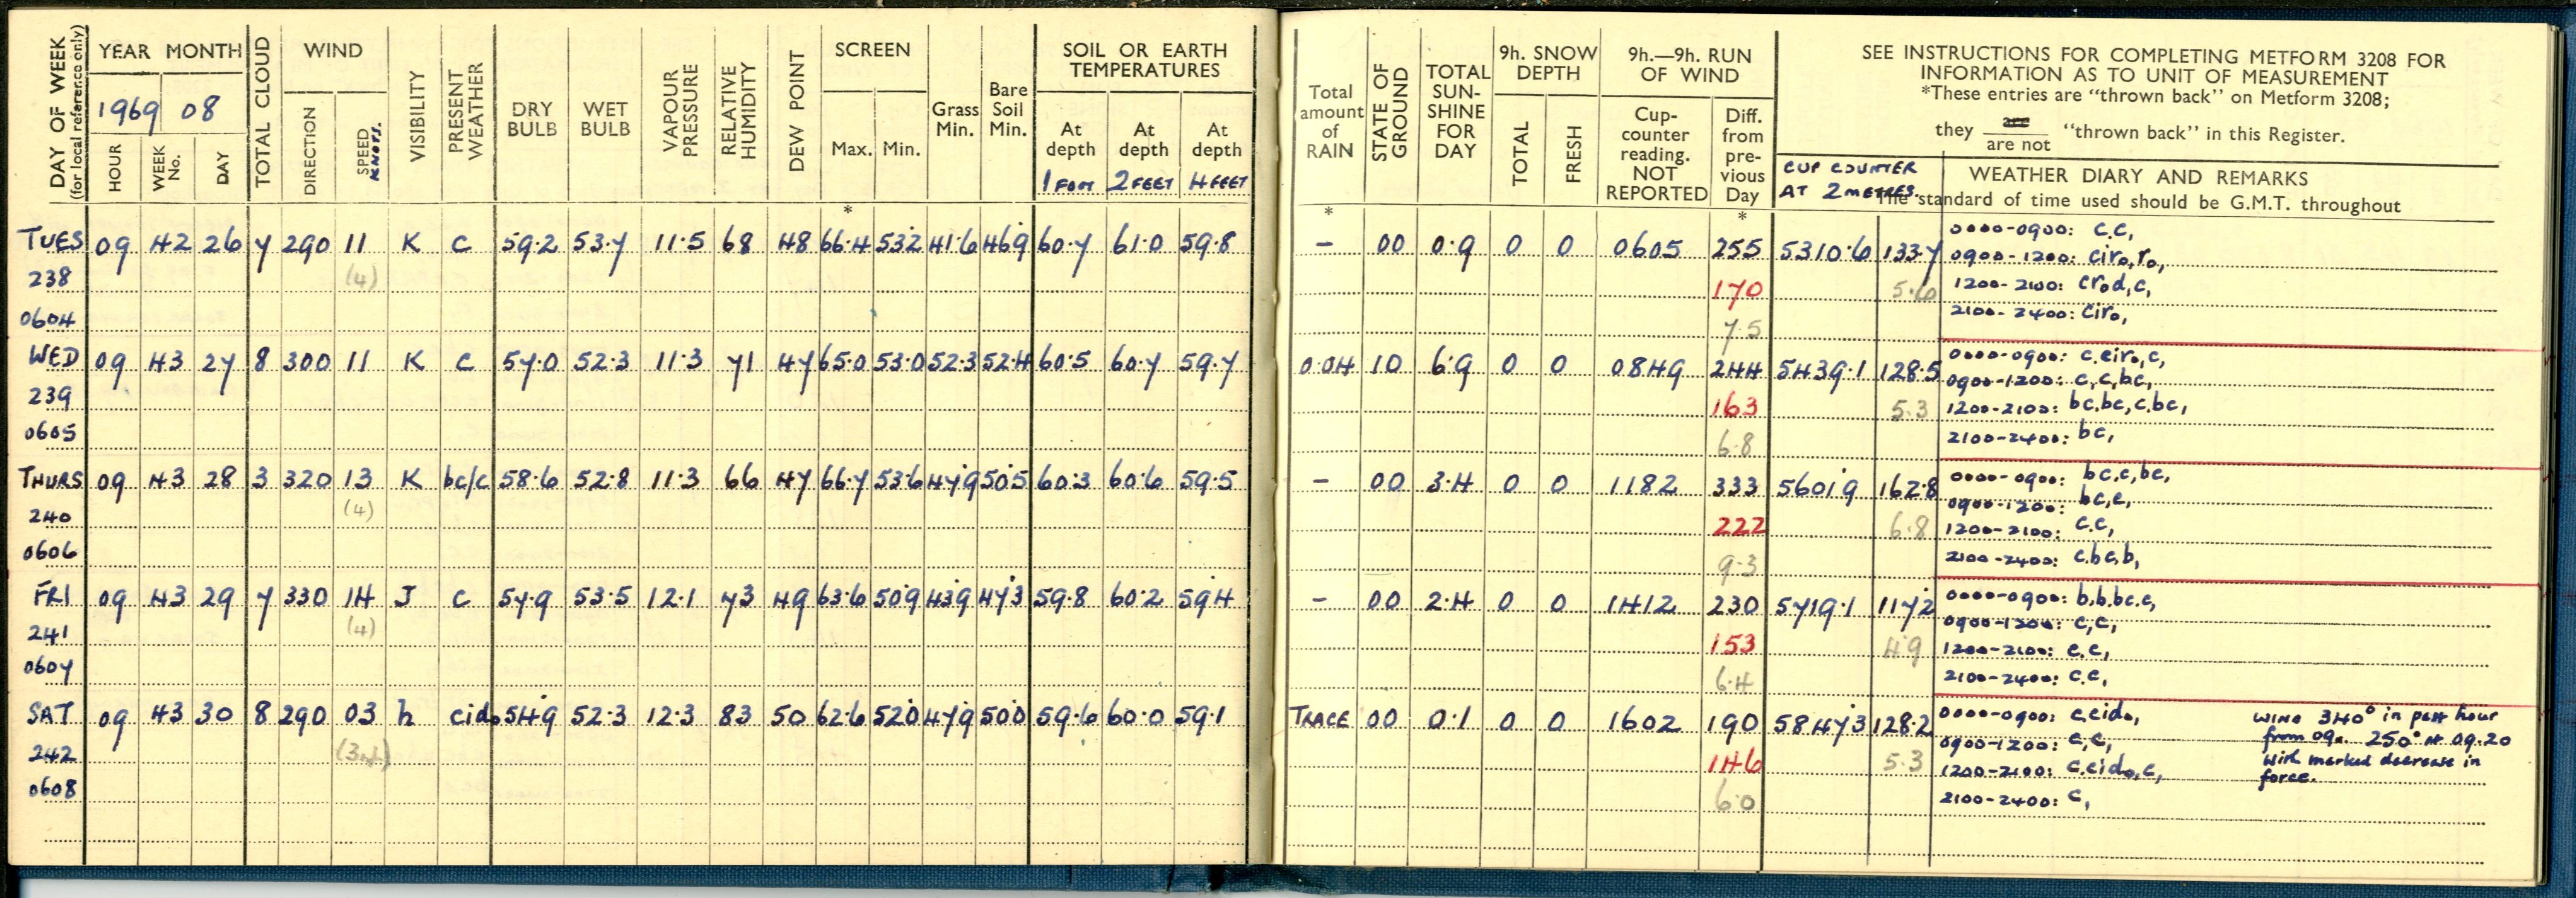 DAY OF WEEK
(for local reference only)
YEAR MONTH
1969 08
HOUR
WEEK No.
DAY
TOTAL CLOUD
WIND
DIRECTION
SPEED
KNOTS.
VISIBILITY
PRESENT WEATHER
DRY BULB
WET BULB
VAPOUR PRESSURE
RELATIVE HUMIDITY
DEW POINT
SCREEN
Max. Min.
*
Grass Min.
Bare Soil Min.
SOIL OR EARTH TEMPERATURES
At depth 1 FOOT
At depth 2 FEET
At depth 4 FEET
Total amount of RAIN
*
STATE OF GROUND
TOTAL SUN-SHINE FOR DAY
9h. SNOW DEPTH
TOTAL
FRESH
9h.—9h. RUN OF WIND
Cup-counter reading. NOT REPORTED
Diff. from pre-vious Day
*
SEE INSTRUCTIONS FOR COMPLETING METFORM 3208 FOR
INFORMATION AS TO UNIT OF MEASUREMENT
*These entries are "thrown back" on Metform 3208;
they are / are not "thrown back" in this Register.
CUP COUNTER
AT 2 METRES.
WEATHER DIARY AND REMARKS
The standard of time used should be G.M.T. throughout
TUES 09 42 26 7 290 11 K c 59.2 53.7 11.5 68 48 66.4 53.2 41.6 46.9 60.7 61.0 59.8 – 00 0.9 0 0 0605 255 5310.6 133.7
238 (4) 170 5.6
0604 7.5
0000-0900: c.c,
0900-1200: ciro,ro,
1200-2100: crod,c,
2100-2400: ciro,
WED 09 43 27 8 300 11 K c 57.0 52.3 11.3 71 47 65.0 53.0 52.3 52.4 60.5 60.7 59.7 0.04 10 6.9 0 0 0849 244 5439.1 128.5
239 163 5.3
0605 6.8
0000-0900: c.eiro,c,
0900-1200: c,c,bc,
1200-2100: bc.bc,c.bc,
2100-2400: bc,
THURS 09 43 28 3 320 13 K bc/c 58.6 52.8 11.3 66 47 66.7 53.6 47.9 50.5 60.3 60.6 59.5 – 00 3.4 0 0 1182 333 5601.9 162.8
240 (4) 222 6.8
0606 9.3
0000-0900: bc.c,bc,
0900-1200: bc,c,
1200-2100: c.c,
2100-2400: c.bc,b,
FRI 09 43 29 7 330 14 J c 57.9 53.5 12.1 73 49 63.6 50.9 43.9 47.3 59.8 60.2 59.4 – 00 2.4 0 0 1412 230 5719.1 117.2
241 (4) 153 4.9
0607 6.4
0000-0900: b.b.bc.c,
0900-1200: c,c,
1200-2100: c,c,
2100-2400: c.c,
SAT 09 43 30 8 290 03 h cido 54.9 52.3 12.3 83 50 62.6 52.0 47.9 50.0 59.6 60.0 59.1 TRACE 00 0.1 0 0 1602 190 5847.3 128.2
242 146 5.3
0608 6.0
0000-0900: c,cido,
0900-1200: c,c,
1200-2100: c.cido,c,
2100-2400: c,
WIND 340° in past hour
from 09. 250° at 09.20
with marked decrease in
force.